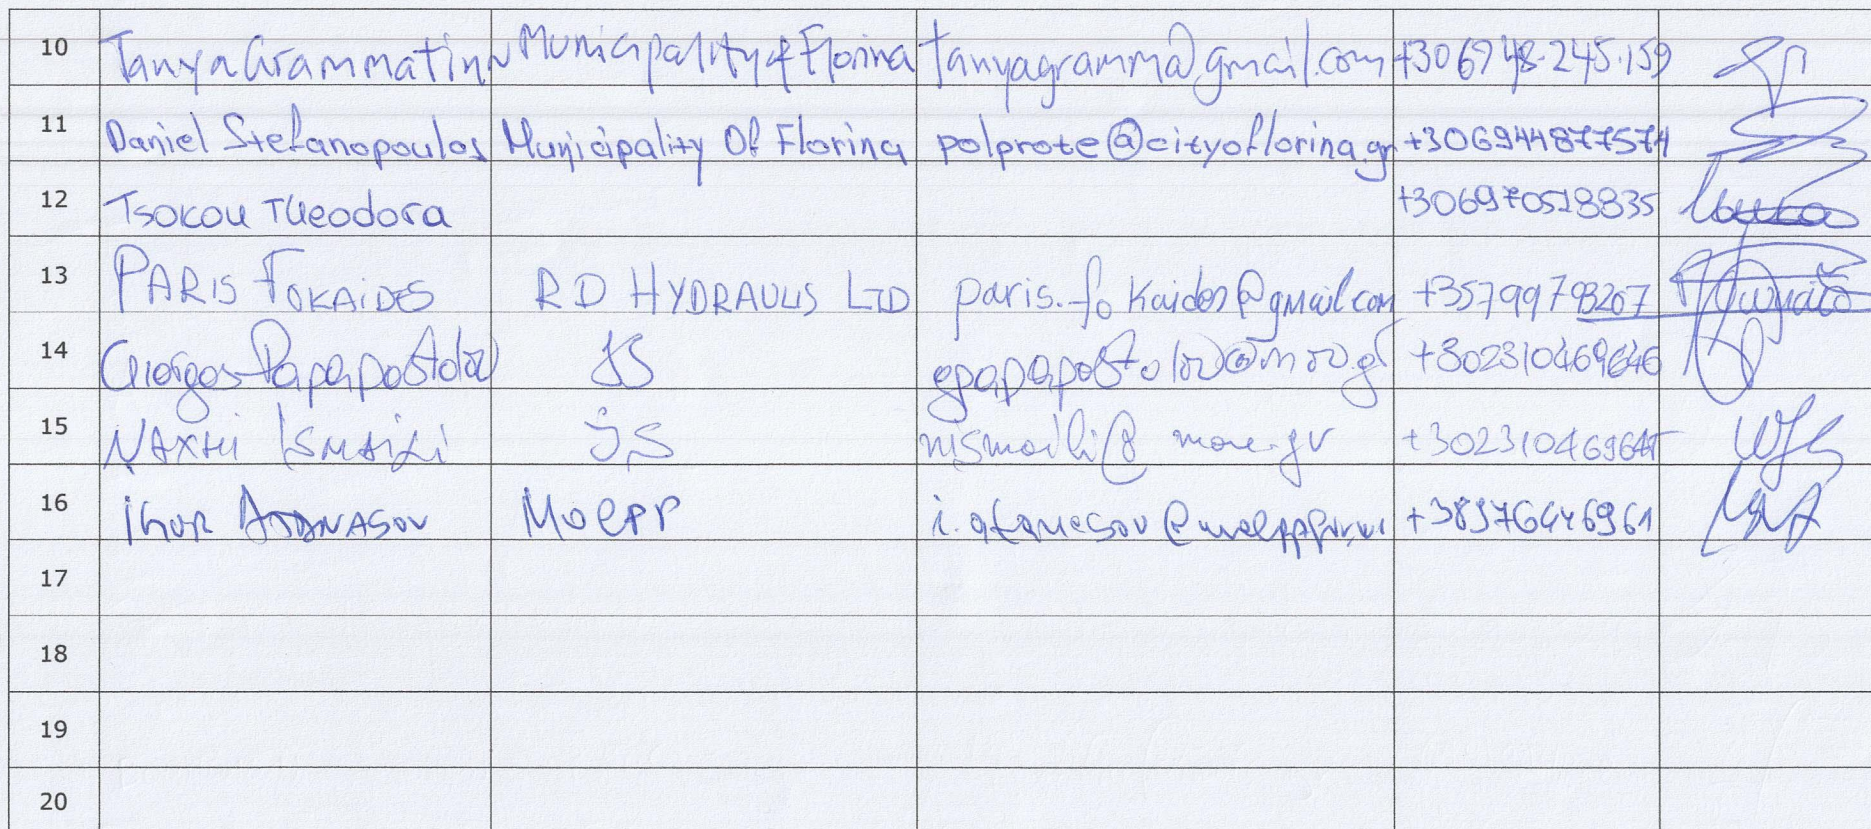 10 Tanya Grammatinn Municipality of Florina tanyagramma@gmail.com +306948.245.159
11 Daniel Stefanopoulos Municipality Of Florina polprote@cityoflorina.gr +306944877574
12 Tsokou Theodora +306970518835
13 PARIS FOKAIDES RD HYDRAULIS LTD paris.fokaides@gmail.com +35799793207
14 Giorgos Papapostolou JS gpapapostolou@mou.gr +302310469646
15 NAXHI ISMAILI JS nismaili@mou.gr
16 IGOR ATANASOV MOEPP +38976446961
17
18
19
20